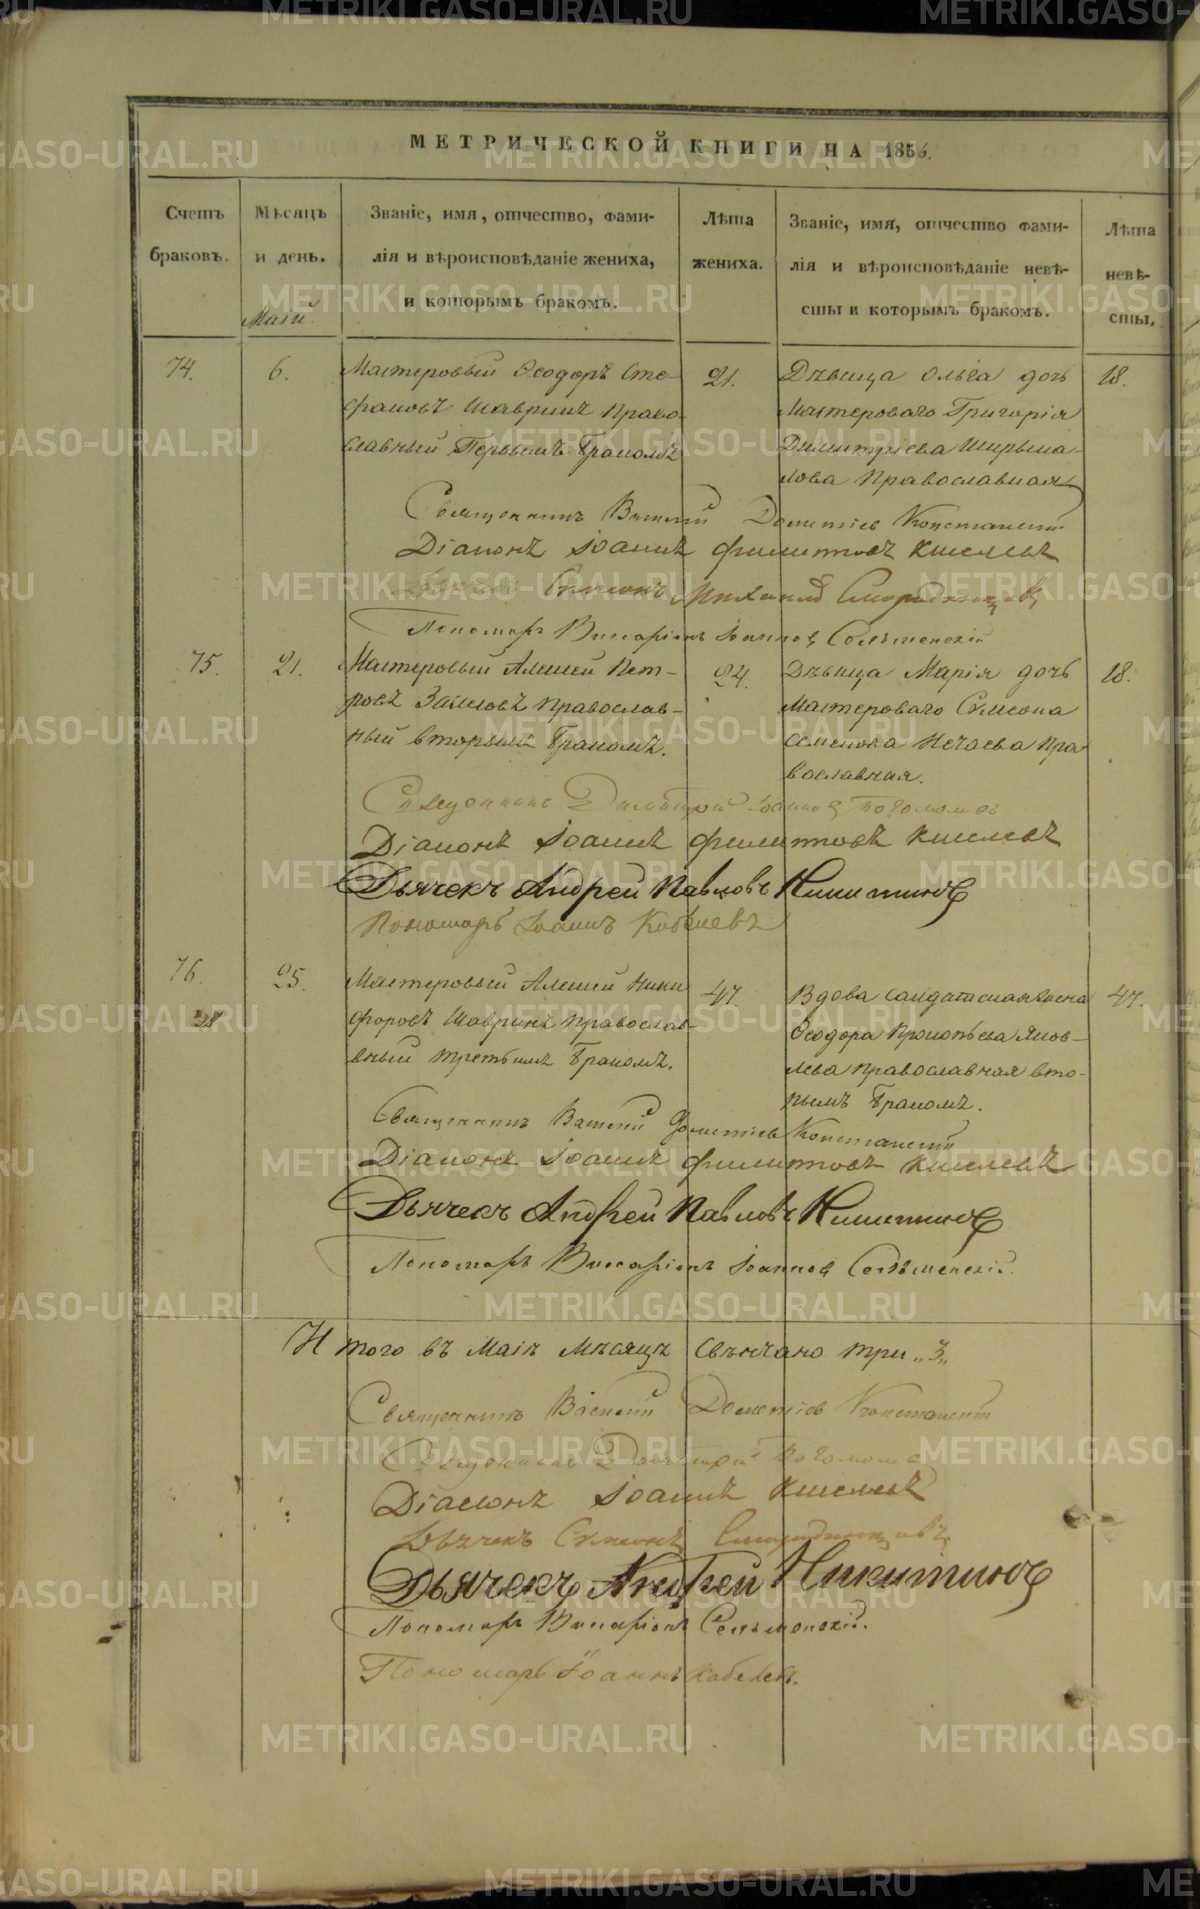 МЕТРИЧЕСКОЙ КНИГИ НА 1856.
Счетъ браковъ.
Мѣсяцъ и день.
Званіе, имя, отчество, фами-
лія и вѣроисповѣданіе жениха,
и которымъ бракомъ.
Лѣта жениха.
Званіе, имя, отчество фами-
лія и вѣроисповѣданіе невѣ-
сты и которымъ бракомъ.
Лѣта невѣ-
сты.
Маій.
74.
6.
Мастеровый Ѳеодоръ Сте-
фановъ Шавринъ Право-
славный Первымъ бракомъ
21.
Дѣвица Ольга дочь
Мастероваго Григорія
Димитріева
Православная
18.
Священникъ Василій Дометіев Констансктій
Діаконъ Іоаннъ Филитовъ Киселевъ
Сѵмеонъ Михаилов
Пономарь Виссаріонъ Іоаннов
75.
21.
Мастеровый Алексей Пет-
ровъ Православ-
ный вторымъ бракомъ.
24.
Дѣвица Марія дочь
Мастероваго Сѵмеона
Семенова Нечаева Пра-
вославная.
18.
Священникъ Димитрій Іоаннов Богомолов
Діаконъ Іоаннъ Филитовъ Киселевъ
Дьячекъ Андрей Павловъ Никитинъ
Пономарь Іоаннъ
76.
25.
Мастеровый Алексей Ники-
форовъ Шавринъ Православ-
вный третьимъ бракомъ.
47.
Вдова солдатская жена
Ѳеодора Прокопьева Яков-
лева православная вто-
рымъ бракомъ.
47.
Священникъ Василій Дометіев
Діаконъ Іоаннъ Филитовъ Киселевъ
Дьячекъ Андрей Павловъ Никитинъ
Пономарь Виссаріонъ Іоаннов
Итого въ Маіѣ Мѣсяцѣ свѣнчано три „3„
Священникъ Василій Дометіев
Священникъ Димитрій Богомолов
Діаконъ Іоаннъ Киселевъ
Дьячекъ Сѵмеонъ
Дьячекъ Андрей Никитинъ
Пономарь Виссаріонъ
Пономарь Іоаннъ
METRIKI.GASO-URAL.RU